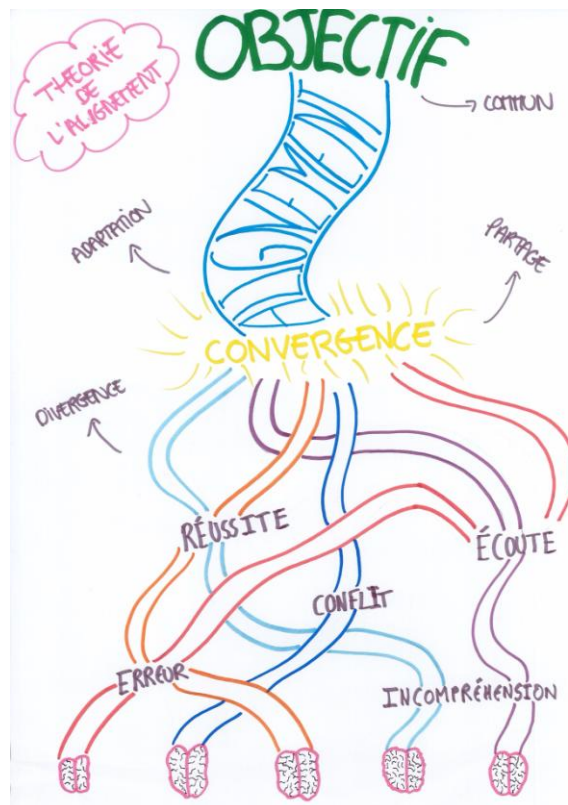 OBJECTIF
THEORIE
DE
L'ALIGNEMENT
COMMUN
ALIGNEMENT
ADAPTATION
PARTAGE
CONVERGENCE
DIVERGENCE
RÉUSSITE
ÉCOUTE
CONFLIT
ERREUR
INCOMPRÉHENSION